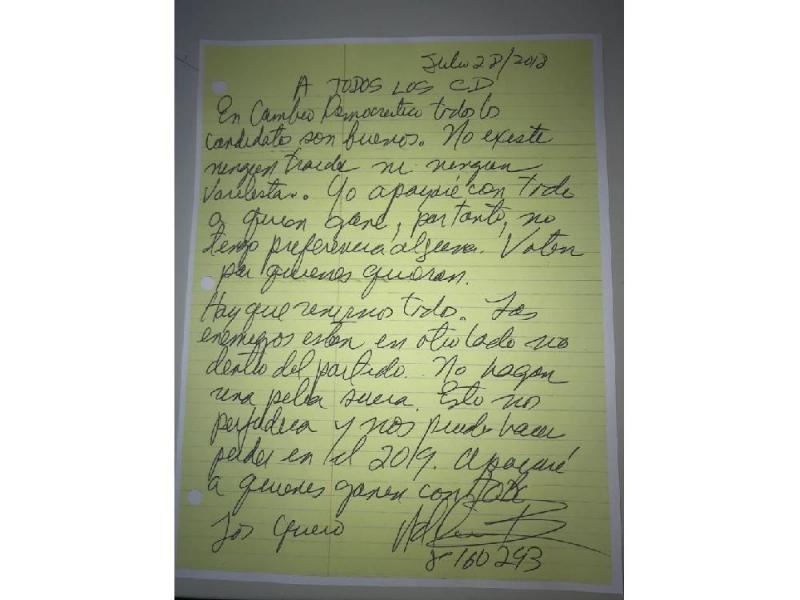 Julio 28/2018
A TODOS LOS CD
En Cambio Democratico todos lo
candidatos son buenos. No existe
ningun ni ningun
Varelista. Yo apoyaré con todo
a quien gane, por tanto, no
tengo preferencia alguna. Voten
por quienes quieran.
Hay que unirnos todo. Los
enemigos estan en otro lado no
dentro del partido. No hagan
una pelea sucia. Esto nos
perjudica y nos puede hacer
perder en el 2019. Apoyaré
a quienes ganen con todo
Los quiero
8-160 293